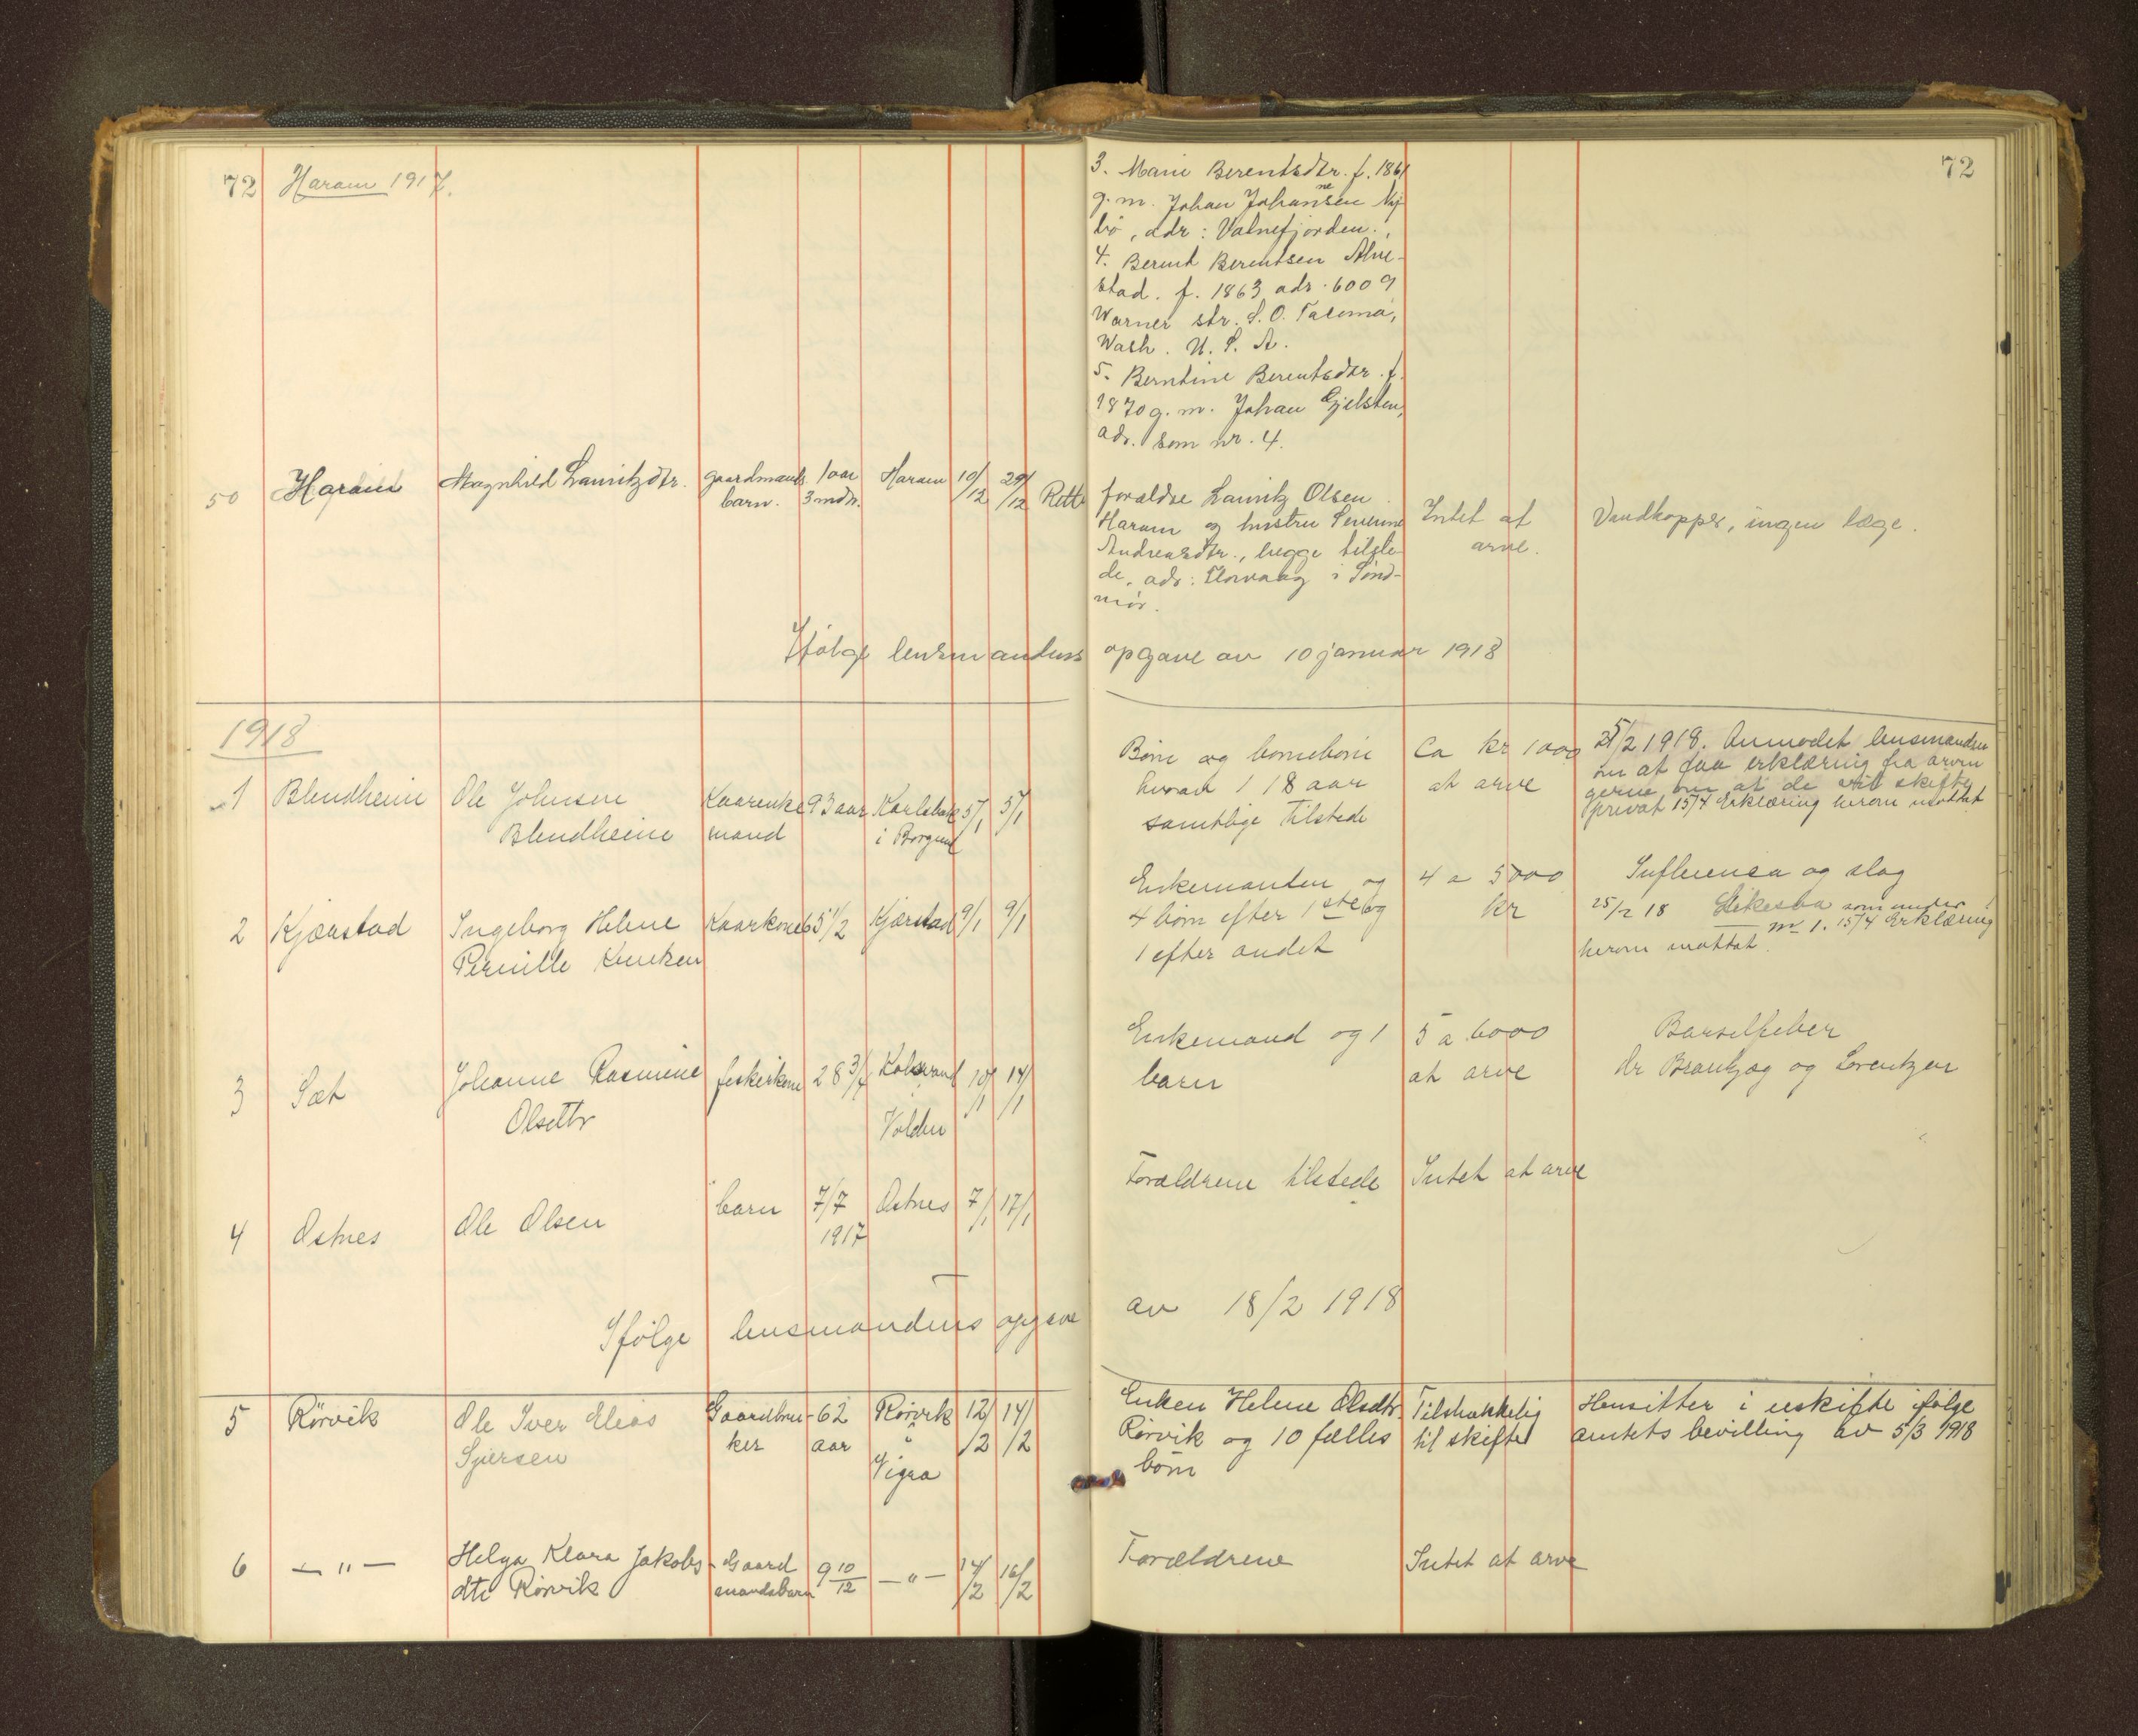 72 Haram 1917.
72
3. Marie Berentsdtr. f. 1861
g. m. Johan Johansen Ny-
bö, adr: Valnefjorden.
4. Bernt Berentsen Alve-
stad. f. 1863 adr. 6009
Warner str. S. O. Tacoma,
Wash. U. S. A.
5. Berntine Berentsdtr. f.
1870 g. m. Johan Gjelsten,
adr. som nr. 4.
50 Haram Magnhild Lauritzdtr. gaardmands 1 aar Haram 10/12 29/12 Rette
barn. 3 mdr.
forældre Lauritz Olsen
Haram og hustru Severine
Andreasdtr., begge tilste-
de, adr: i Sönd-
mör.
Intet at
arve.
Vandkopper, ingen læge.
Ifølge lensmandens opgave av 10 januar 1918
1918
1 Blendheim Ole Johnsen Kaarenke 93 aar Karlsbak 5/1 5/1
Blendheim mand i Borgund
Börn og börnebörn
hvorav 1 18 aar
samtlige tilstede
Ca kr 1000
at arve
25/2 1918. Anmodet lensmanden
om at faa erklæring fra arvin
gerne om at de vil skifte
privat 15/4 Erklæring herom mottat
2 Kjærstad Ingeborg Helene Kaarkone 65 1/2 Kjærstad 9/1 9/1
Pernille Knutsen
Enkemanden og
4 börn efter 1ste og
1 efter andet
4 a 5000
kr
Influensa og slag
25/2 18 Likesaa som under
nr 1. 15/4 Erklæring
herom mottat.
3 Sæt Johanne Rasmine fiskerkone 28 3/4 10/1 14/1
Olsdtr Volden
Enkemand og 1
barn
5 a 6000
at arve
Barselfeber
dr og Lorentzen
4 Østnes Ole Olsen barn 7/7 Østnes 7/1 17/1
1917
Forældrene tilstede Intet at arve
Ifølge lensmandens opgave av 18/2 1918
5 Rörvik Ole Iver Elias Gaardbru- 62 Rörvik 12/2 14/2
ker aar " Vigra
Enken Helene Olsdtr
Rörvik og 10 fælles
börn
Tilstrækkelig
til skifte
Hensitter i uskifte ifölge
amtets bevilling av 5/3 1918
6 — " — Helga Klara Jakobs- Gaard 9 10/12 — " — 14/2 16/2
dtr Rörvik mandsbarn
Forældrene Intet at arve